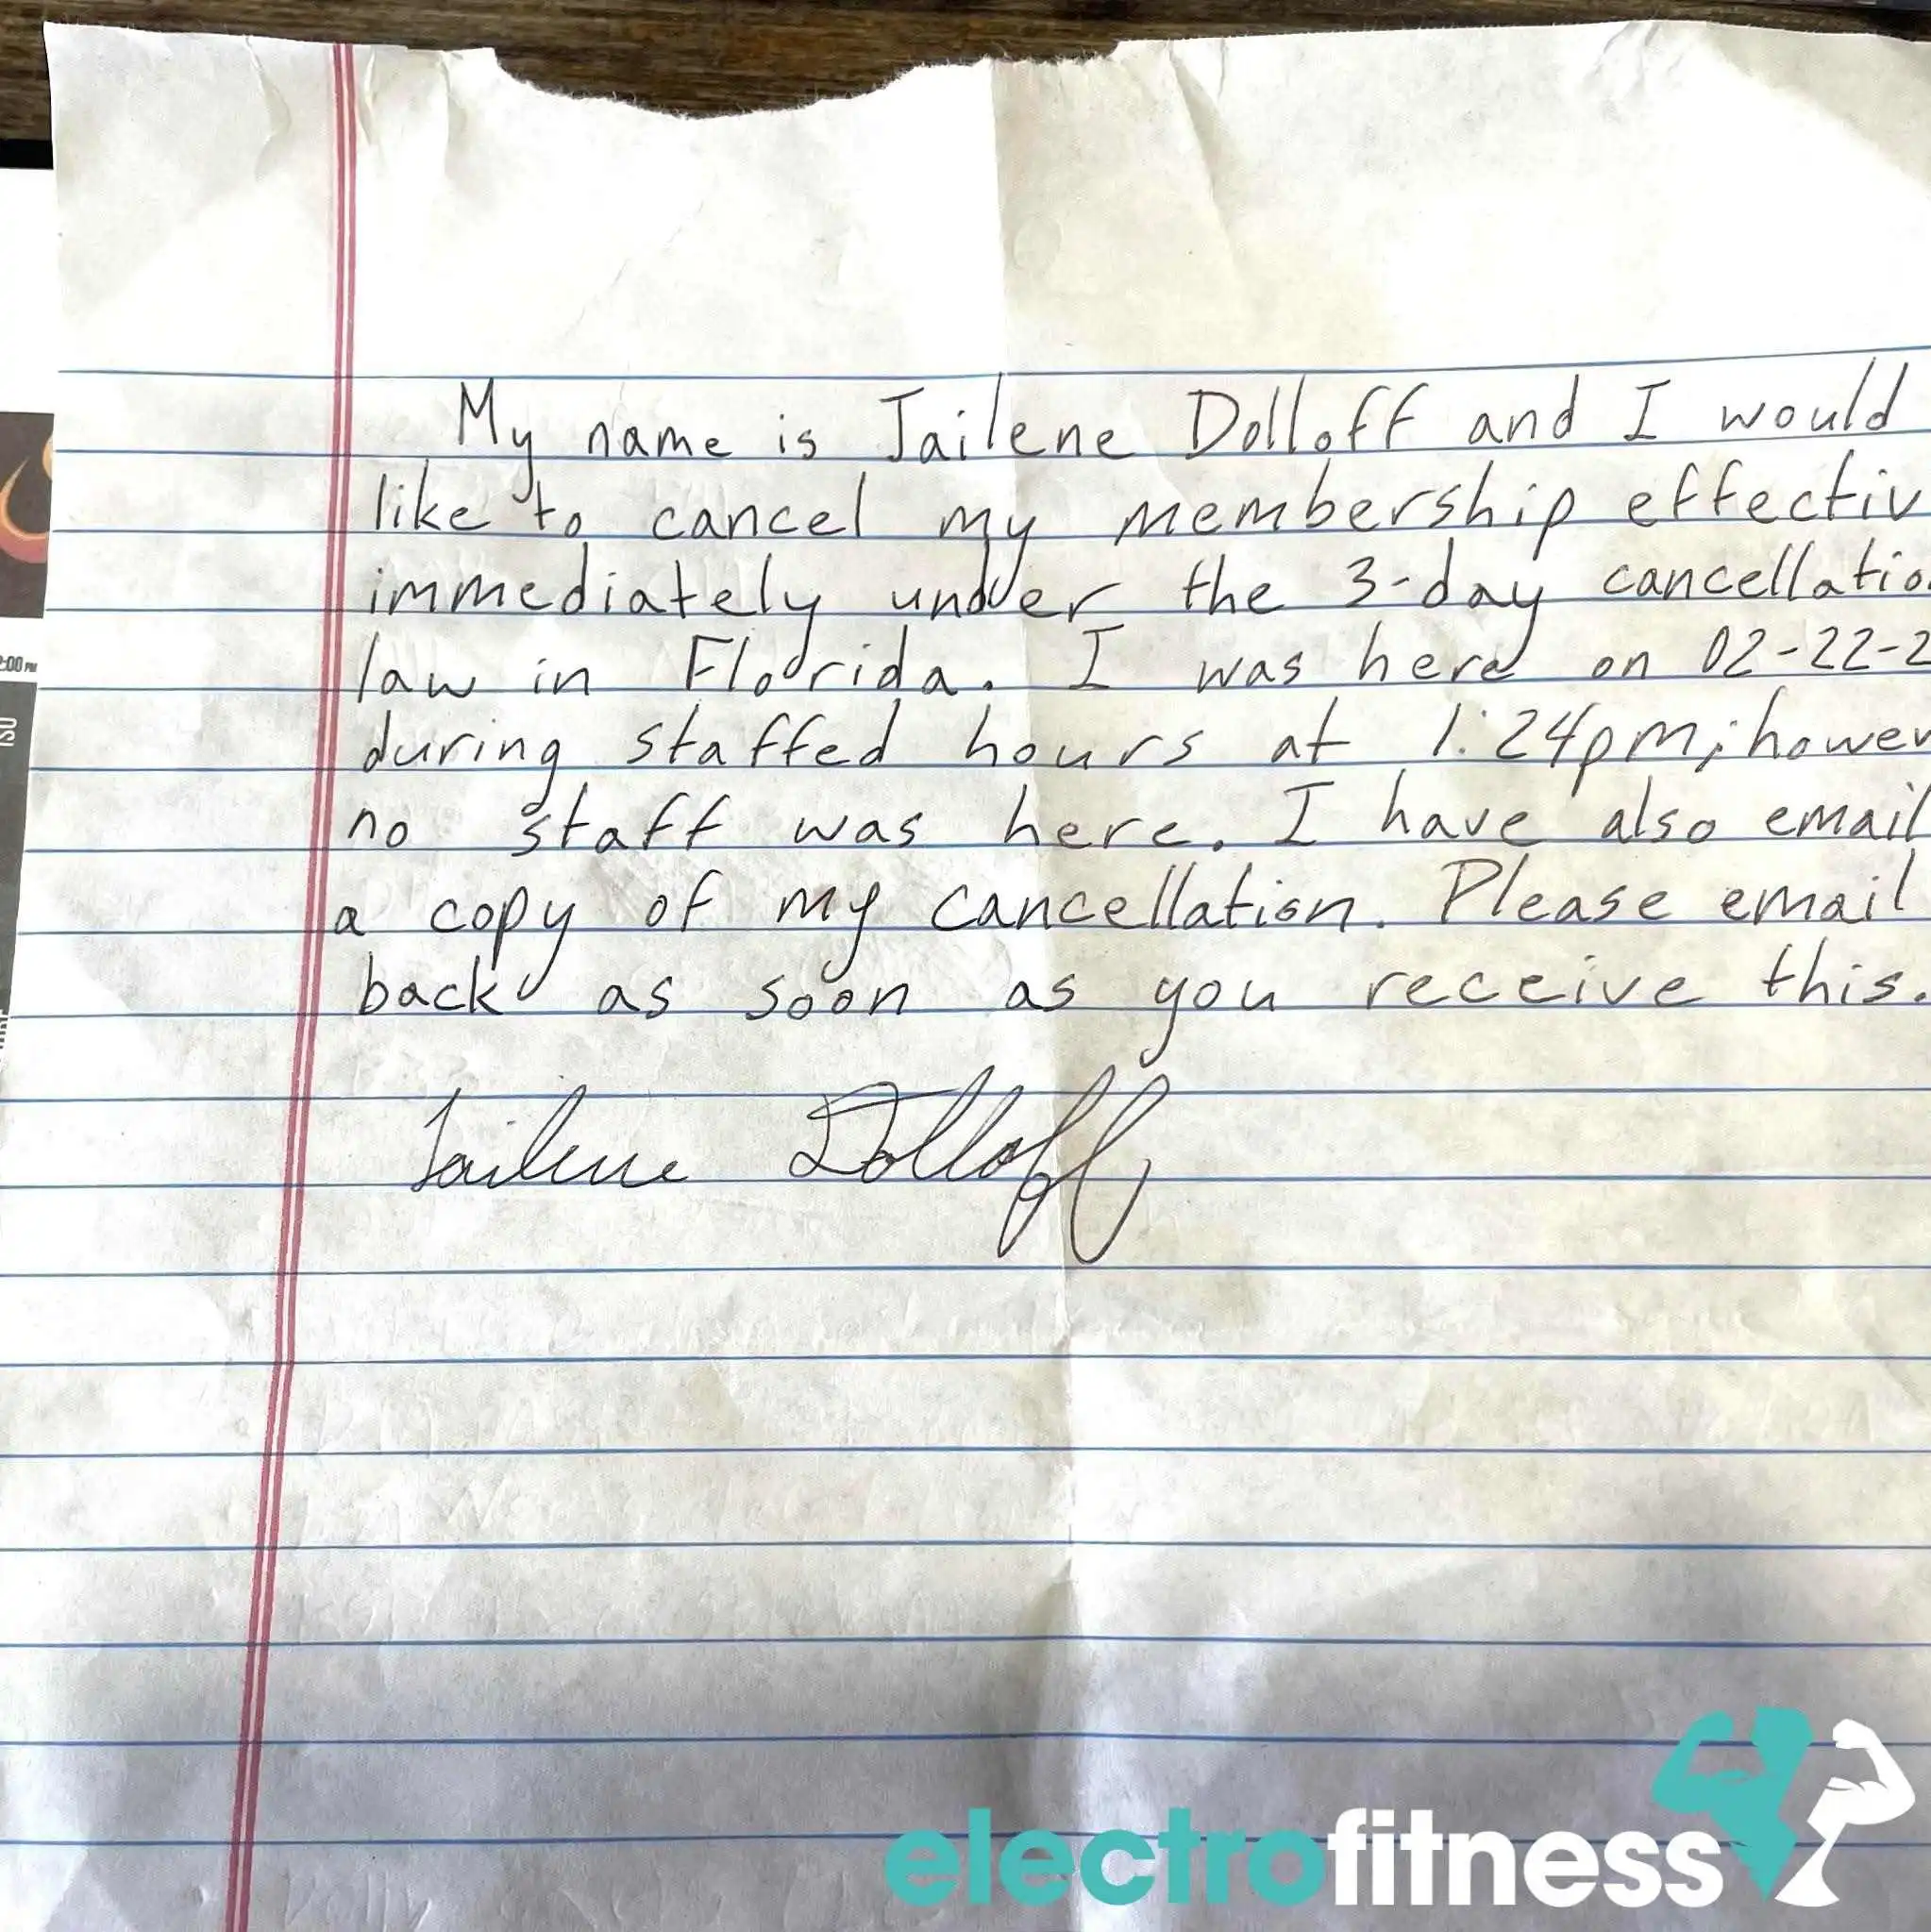 My name is Jailene Dolloff and I would
like to cancel my membership effectiv
immediately under the 3-day cancellatio
law in Florida. I was here on 02-22-2
during staffed hours at 1:24pm; howev
no staff was here. I have also email
a copy of my cancellation. Please email
back as soon as you receive this.
Jailene Dolloff
2:00 PM
electrofitness